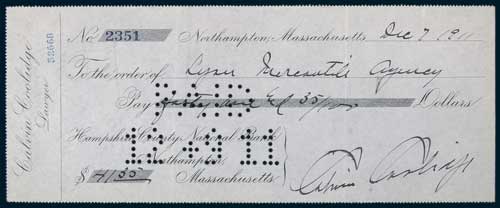 No 2351 Northampton, Massachusetts, Dec 7 1911
To the order of Lyon Mercantile Agency
Pay Forty one & 35/100 Dollars
PAID
Hampshire County National Bank
12 20 11
Northampton
$ 41 35 Massachusetts
Calvin Coolidge
Calvin Coolidge
Lawyer